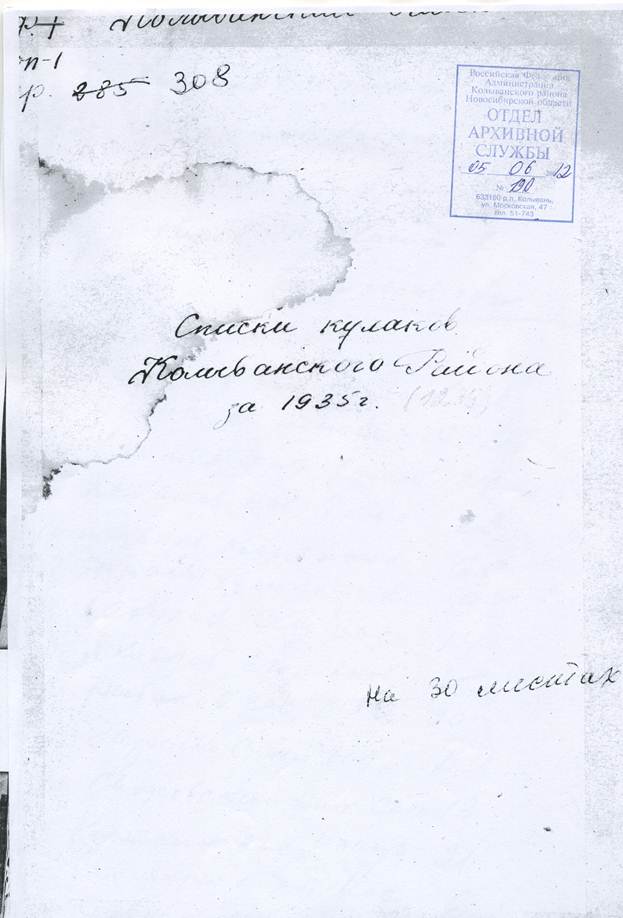 Колыванский
оп-1
р. 285 308
Российская Федерация
Администрация
Колыванского района
Новосибирской области
ОТДЕЛ
АРХИВНОЙ
СЛУЖБЫ
05 06 12
№ 190
633160 р.п. Колывань,
ул. Московская, 47
тел. 51-743
Списки кулаков
Колыванского Района
за 1935г.
на 30 листах